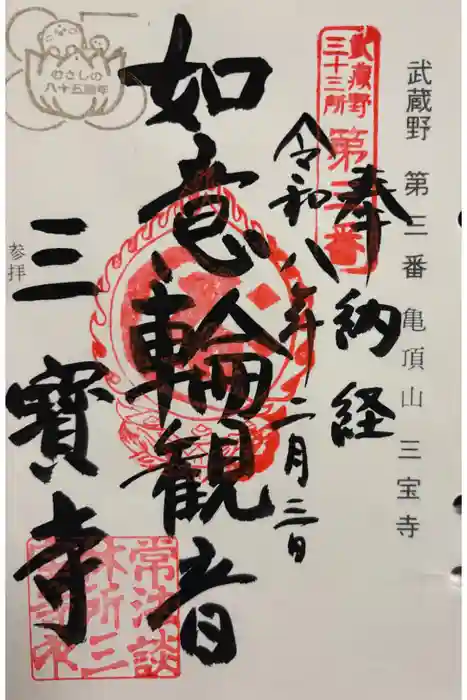 武蔵野 第三番 亀頂山 三宝寺
武蔵野
三十三所
第三番
奉納経
令和八年二月三日
如意輪観音
三寳寺
参拝
むさしの
八十五周年
常法談
林所三